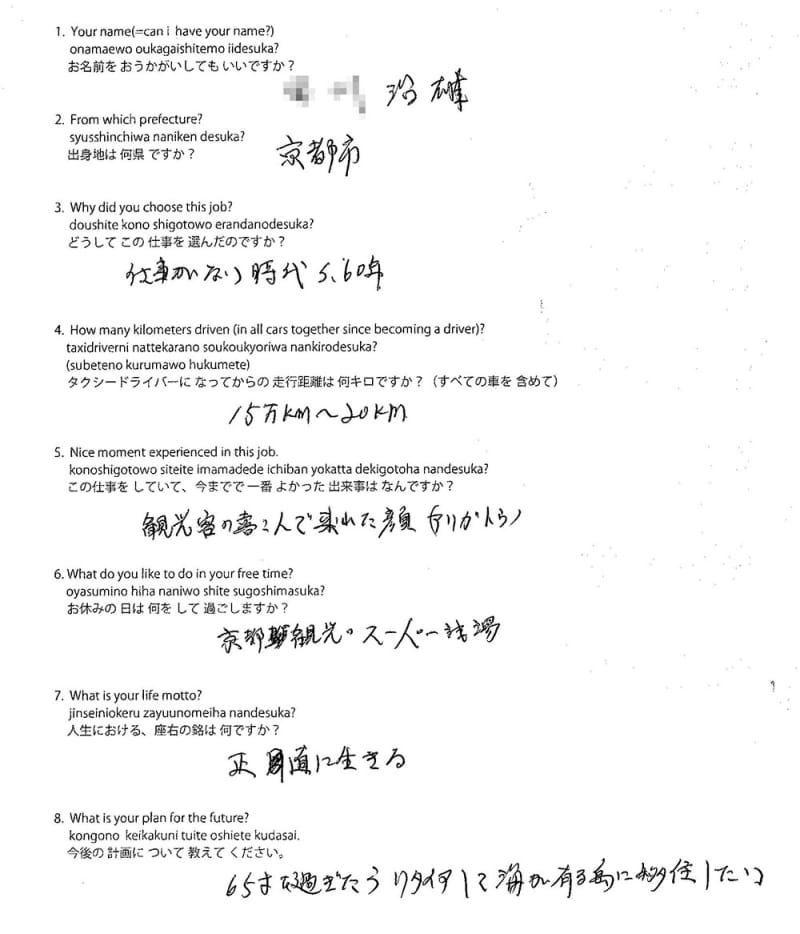 1. Your name(=can i have your name?)
onamaewo oukagaishitemo iidesuka?
お名前を おうかがいしても いいですか？
治雄
2. From which prefecture?
syusshinchiwa naniken desuka?
出身地は 何県 ですか？
京都市
3. Why did you choose this job?
doushite kono shigotowo erandanodesuka?
どうして この 仕事を 選んだのですか？
仕事がない時代 S.60年
4. How many kilometers driven (in all cars together since becoming a driver)?
taxidriverni nattekarano soukoukyoriwa nankirodesuka?
(subeteno kurumawo hukumete)
タクシードライバーに なってからの 走行距離は 何キロですか？（すべての車を 含めて）
15万KM〜20KM
5. Nice moment experienced in this job.
konoshigotowo siteite imamadede ichiban yokatta dekigotoha nandesuka?
この仕事を していて、今までで 一番 よかった 出来事は なんですか？
観光客の喜こんで 顔
6. What do you like to do in your free time?
oyasumino hiha naniwo shite sugoshimasuka?
お休みの 日は 何を して 過ごしますか？
京都 観光。スーパー
7. What is your life motto?
jinseiniokeru zayuunomeiha nandesuka?
人生における、座右の銘は 何ですか？
正直に生きる
8. What is your plan for the future?
kongono keikakuni tuite oshiete kudasai.
今後の 計画に ついて 教えて ください。
65才を過ぎたらリタイヤして海が有る島に移住したい